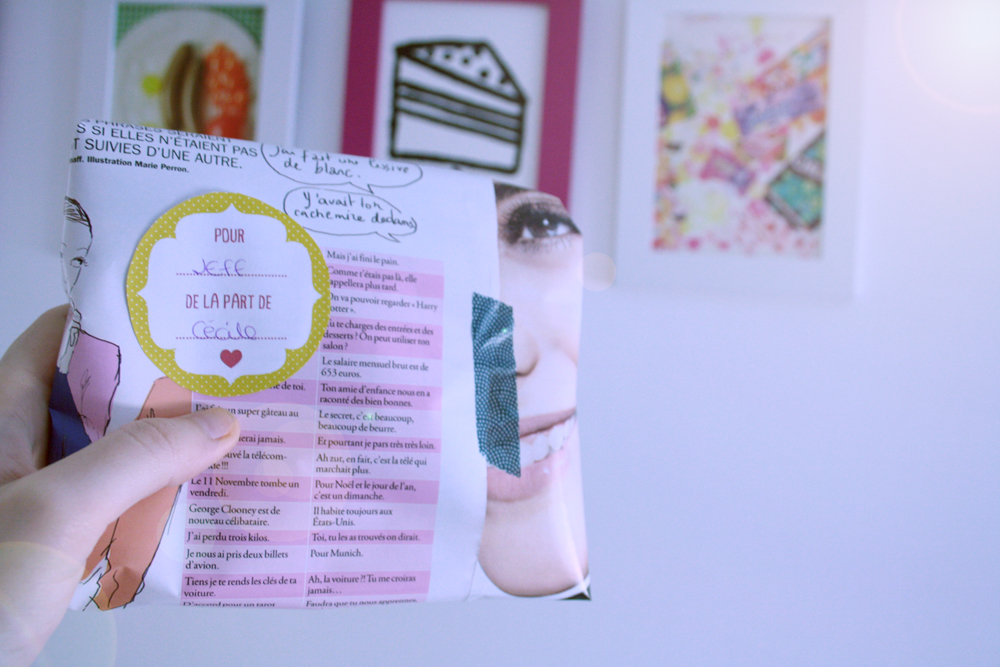 PHRASES SERAIENT
S SI ELLES N'ÉTAIENT PAS
T SUIVIES D'UNE AUTRE.
aff. Illustration Marie Perron.
J'ai fait une lessive
de blanc.
Y'avait ton
cachemire dedans
POUR
Jeff
DE LA PART DE
Cécile
Mais j'ai fini le pain.
Comme t'étais pas là, elle
appellera plus tard.
On va pouvoir regarder « Harry
Potter ».
Tu te charges des entrées et des
desserts ? On peut utiliser ton
salon ?
Le salaire mensuel brut est de
653 euros.
de toi.
Ton amie d'enfance nous en a
raconté des bien bonnes.
un super gâteau au
Le secret, c'est beaucoup,
beaucoup de beurre.
jamais.
Et pourtant je pars très très loin.
la télécom-
!!!
Ah zut, en fait, c'est la télé qui
marchait plus.
Le 11 Novembre tombe un
vendredi.
Pour Noël et le jour de l'an,
c'est un dimanche.
George Clooney est de
nouveau célibataire.
Il habite toujours aux
États-Unis.
J'ai perdu trois kilos.
Toi, tu les as trouvés on dirait.
Je nous ai pris deux billets
d'avion.
Pour Munich.
Tiens je te rends les clés de ta
voiture.
Ah, la voiture ?! Tu me croiras
jamais…
D'accord pour un tarot
Faudra que tu nous apprennes